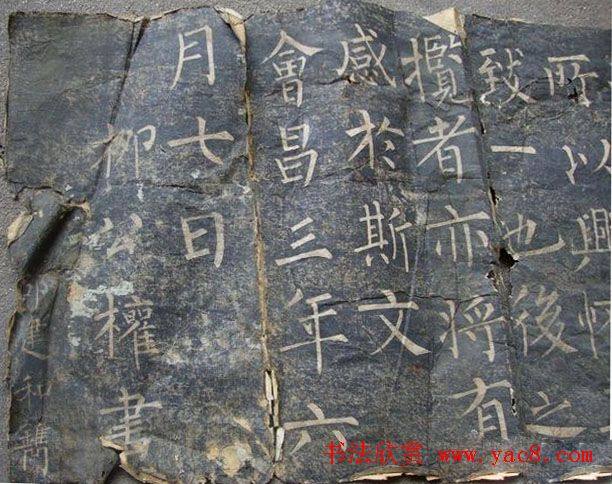 所以興懷
致一也後之
攬者亦将有
感於斯文
會昌三年六
月七日
柳公權書
邵建和鐫
书法欣赏 www.yac8.com